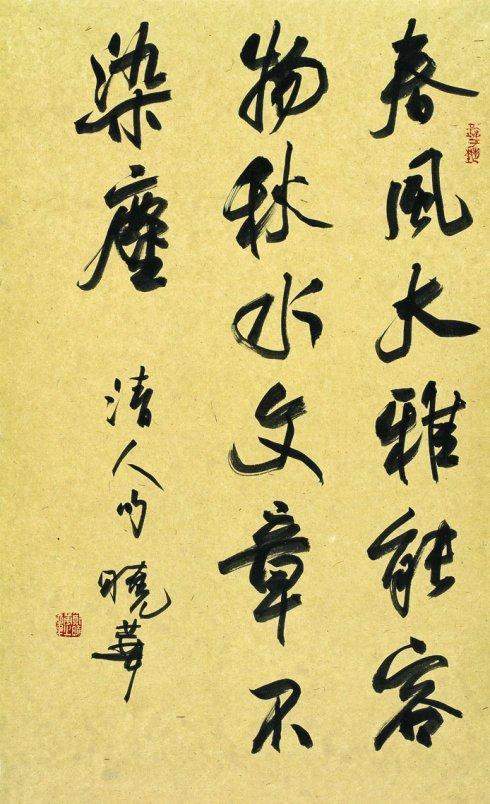 春风大雅能容
物秋水文章不
染塵
清人句 曉華